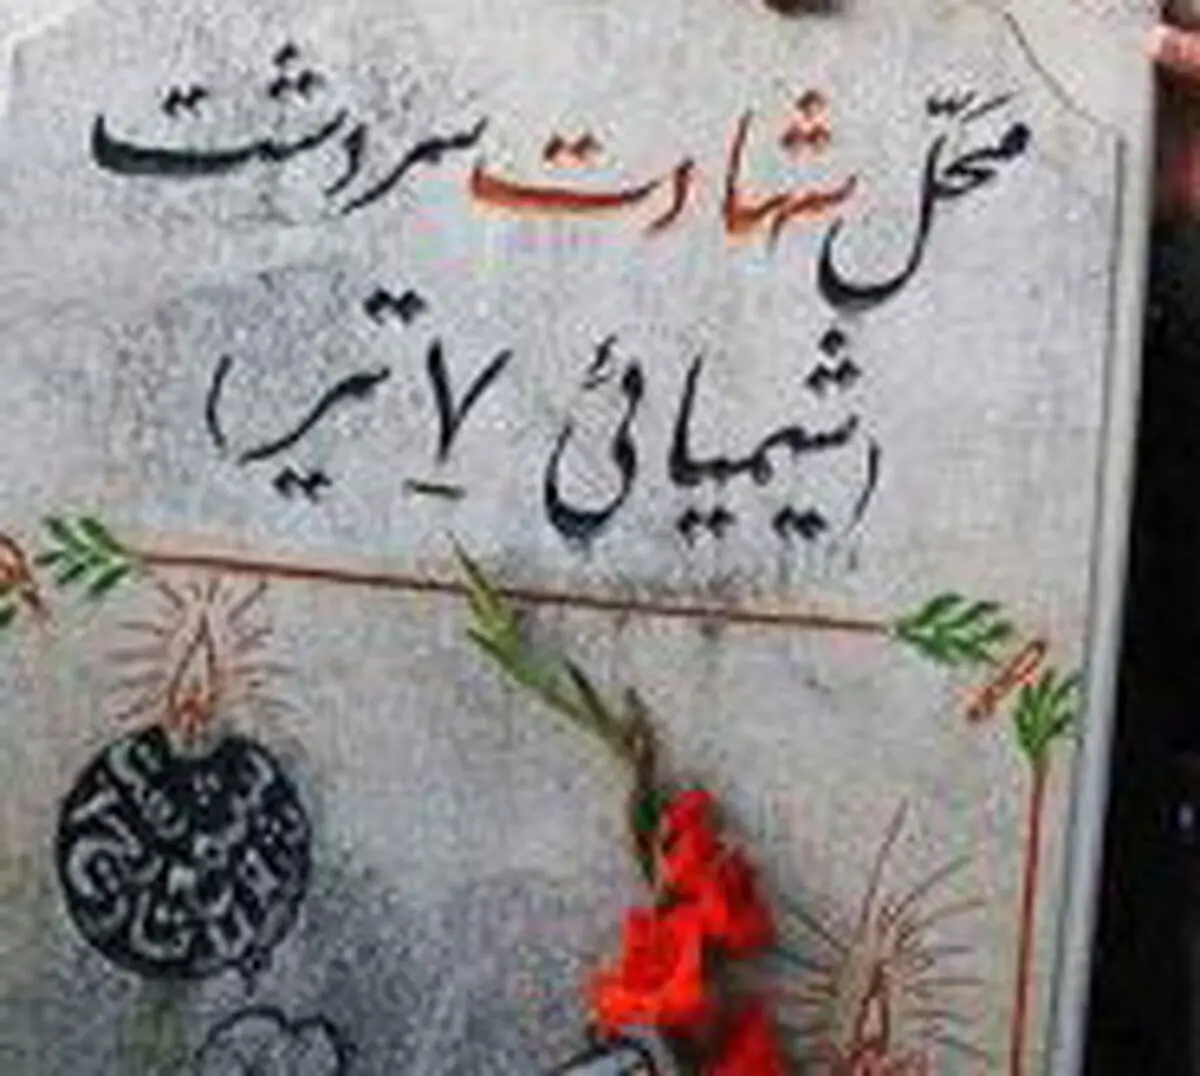 مَحَلّ شهادت سردشت
(شیمیائی ۷ تیر)